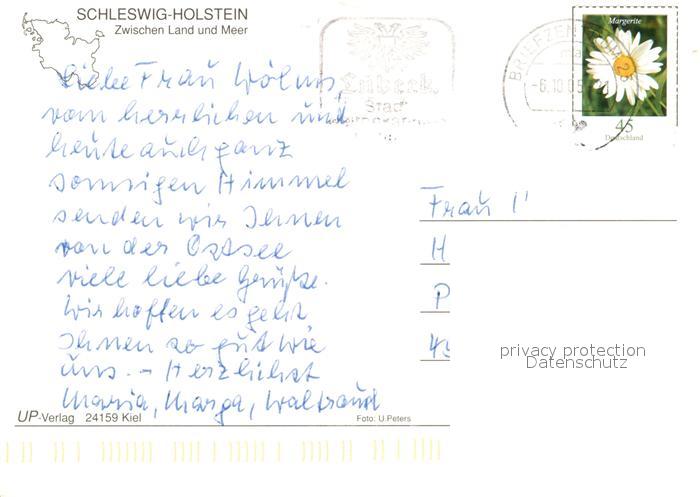 SCHLESWIG-HOLSTEIN
Zwischen Land und Meer
Liebe Frau Wölms,
vom herrlichen und
heute auch ganz
sonnigen Himmel
senden wir Ihnen
von der Ostsee
viele liebe Grüße.
Wir hoffen es geht
Ihnen so gut wie
uns. – Herzlichst
Maria, Marga, Waltraud
UP-Verlag 24159 Kiel
Foto: U.Peters
Lübeck
Stadt
BRIEFZENTRUM
-6.10.05
Margerite
45
Deutschland
Frau
H
P
privacy protection
Datenschutz